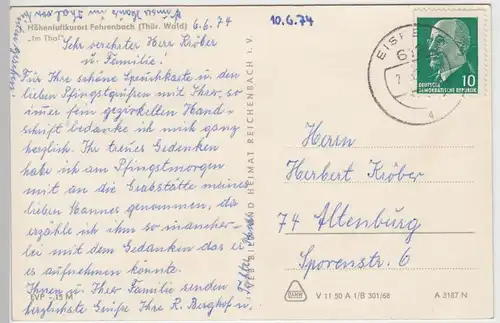 Höhenluftkurort Fehrenbach (Thür. Wald)
"Im Thal"
6.6.74
Sehr verehrter Herr Kröber
u. Familie!
Für Ihre schöne Spruchkarte u. den
lieben Pfingstgrüßen mit Ihrer, so
immer fein gezirkelten Hand-
schrift bedanke ich mich ganz
herzlich. Ihr treues Gedenken
habe ich am Pfingstmorgen
mit an die Grabstätte meines
lieben Hannes genommen, da
erzähle ich ihm so mancher-
lei mit dem Gedanken das er
es aufnehmen könnte.
Ihnen u. Ihrer Familie senden
herzlichste Grüße Ihre R. Berghof u.
EVP -,15 M
BILD UND HEIMAT REICHENBACH i. V.
10.6.74
EISF
DEUTSCHE
DEMOKRATISCHE REPUBLIK
10
Herrn
Herbert Kröber
74 Altenburg
Sporenstr. 6
V 11 50 A 1/B 301/68
A 3187 N